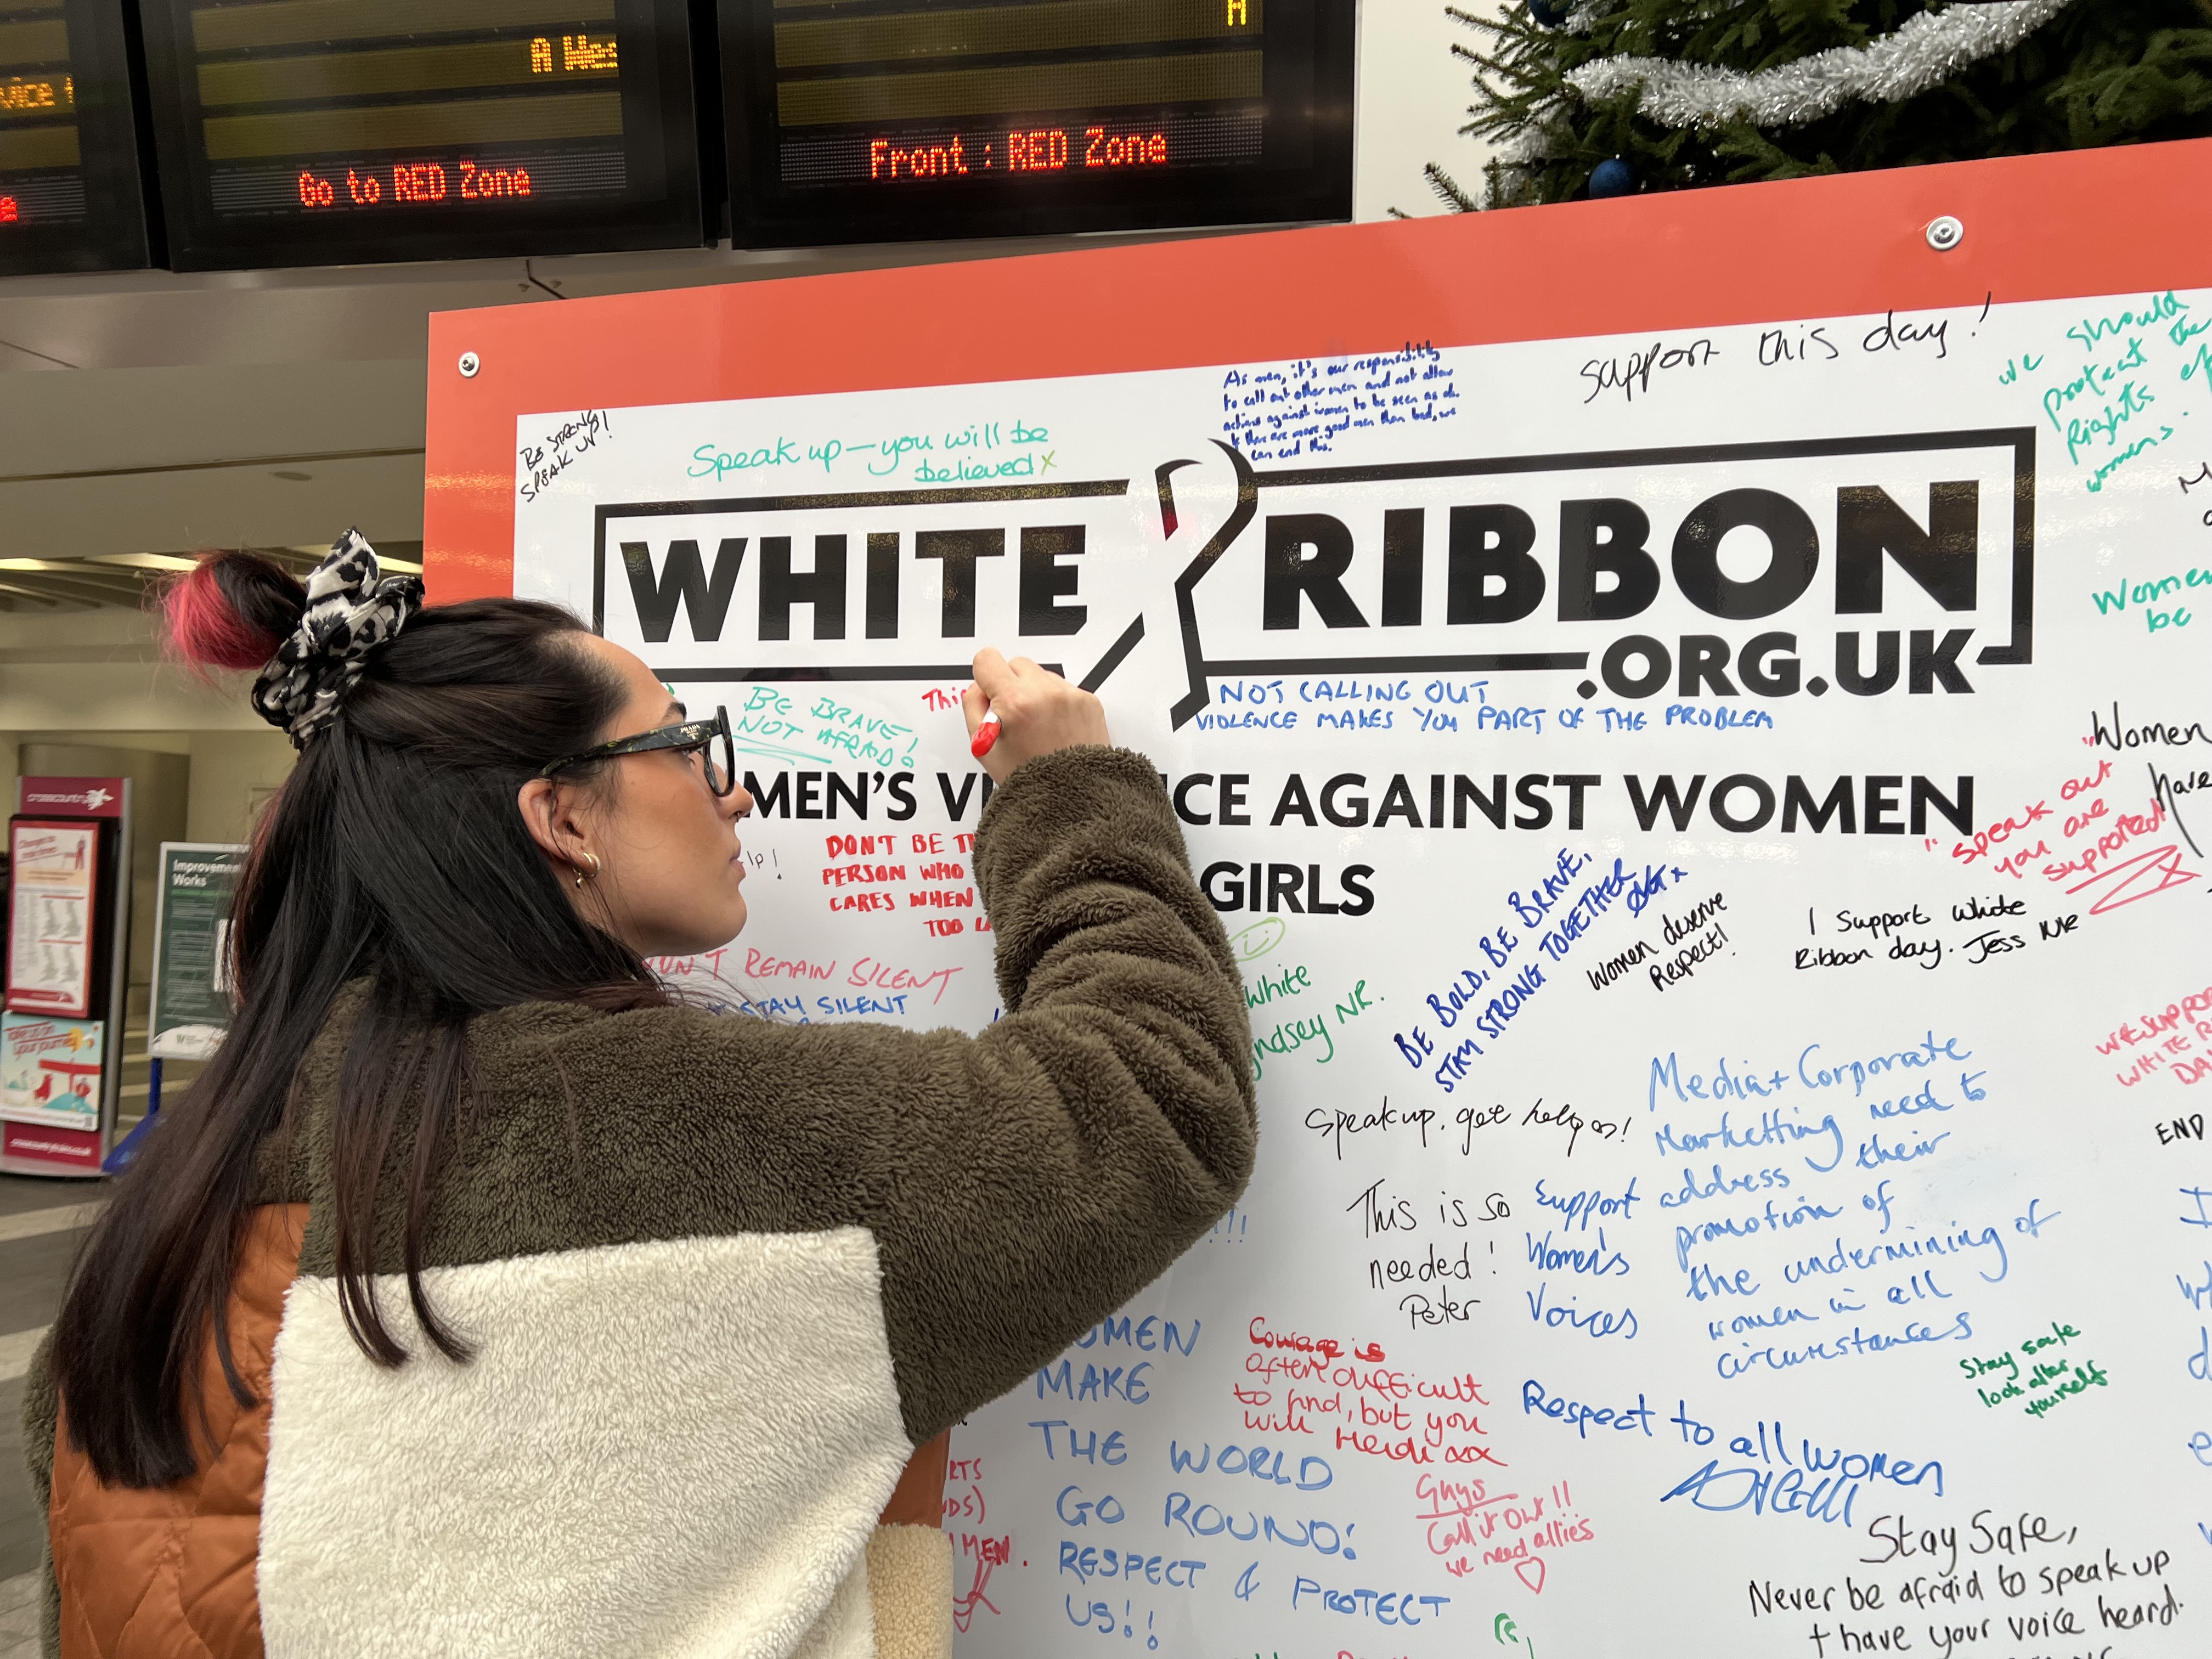 vice
A Wes
A
Go to RED Zone
Front : RED Zone
BE STRONG
SPEAK UP!
Speak up – you will be
believed x
As men, it's our responsibility
to call out other men and not allow
actions against women to be seen as ok.
there are more good men than bad, we
can end this.
support this day!
we should
protect the
Rights of
womens.
WHITE RIBBON
.ORG.UK
BE BRAVE!
NOT AFRAID!
Thi
NOT CALLING OUT
VIOLENCE MAKES YOU PART OF THE PROBLEM
Women
be
MEN'S VI CE AGAINST WOMEN
GIRLS
"Women
have
"Speak out
you are
supported!
X
lp!
DON'T BE TH
PERSON WHO
CARES WHEN
TOO LA
ON'T REMAIN SILENT
STAY SILENT
White
yndsey NR.
BE BOLD, BE BRAVE,
STAY STRONG TOGETHER
Women deserve
Respect!
I Support White
Ribbon day. Jess NR
WE SUPPO
WHITE R
DA
Speak up. get help
This is so
needed!
Peter
Support
Women's
Voices
Media + Corporate
Marketting need to
address their
promotion of
the undermining of
women in all
circumstances
END
!!!
OMEN
MAKE
THE WORLD
GO ROUND!
RESPECT & PROTECT
US!!
Courage is
often difficult
to find, but you
will Heidi xx
Guys
Call it Out!!
we need allies
Respect to all women
Stay safe
look after
yourself
Stay Safe,
Never be afraid to speak up
+ have your voice heard.
RTS
DS)
MEN.
Improvement
Works
crosscountry
PRADA